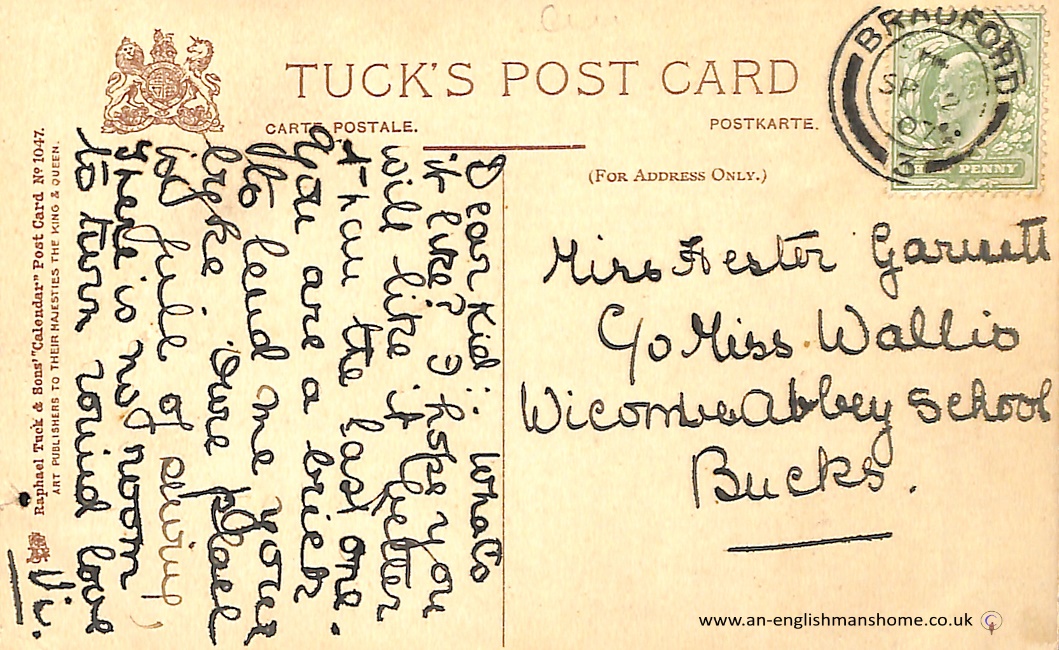 TUCK'S POST CARD
CARTE POSTALE.
POSTKARTE.
(FOR ADDRESS ONLY.)
BRADFORD
SP 2
07
3
HALF PENNY
Raphael Tuck & Sons' "Calendar" Post Card No 1047.
ART PUBLISHERS TO THEIR MAJESTIES THE KING & QUEEN.
Dear Kid: Whats
it like? I hope you
will like it better
than the last one.
You are a brick
to lend me your
byke. Our place
is full of
there is not room
to turn round love
Vic.
Miss Hester Garnett
C/o Miss Wallis
Wicombe Abbey School
Bucks.
www.an-englishmanshome.co.uk